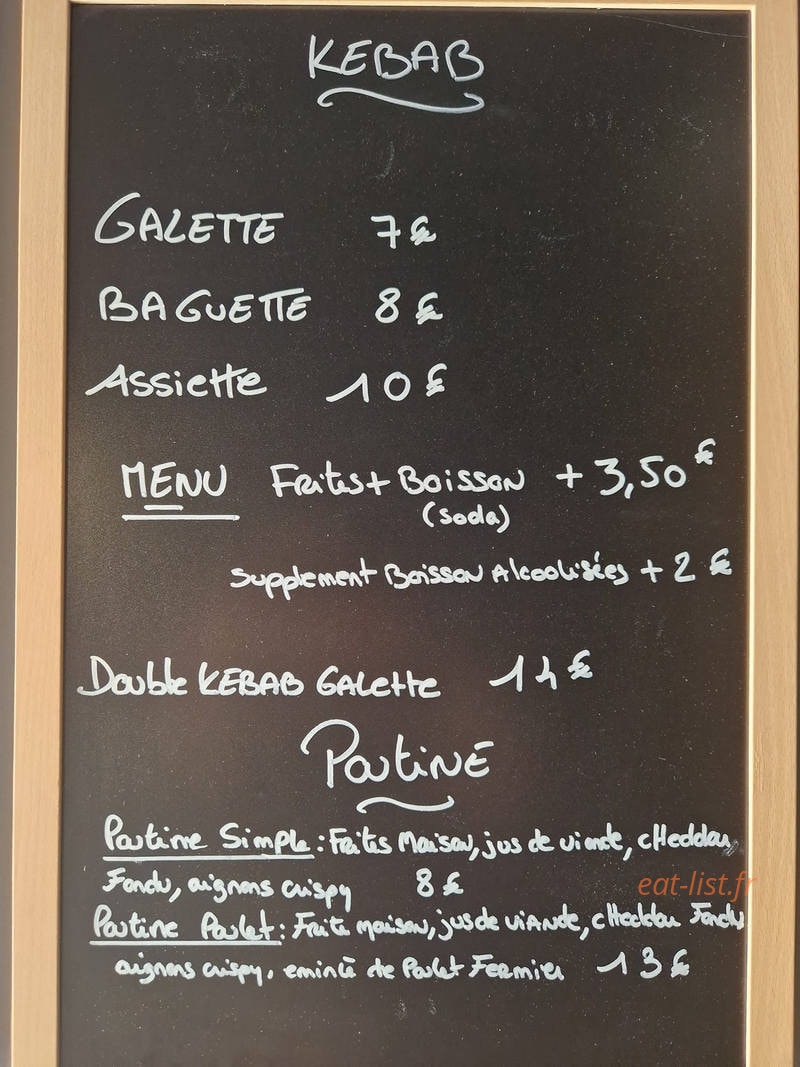 KEBAB
GALETTE 7€
BAGUETTE 8€
Assiette 10€
MENU Frites + Boisson + 3,50€
(soda)
supplement Boisson Alcoolisées + 2€
Double KEBAB GALette 14€
Poutine
Poutine Simple : Frites Maison, jus de viande, cHeddar
Fondu, oignons crispy 8€
eat-list.fr
Poutine Poulet : Frite maison, jus de viande, cHeddar Fondu
oignons crispy, émincé de Poulet Fermier 13€